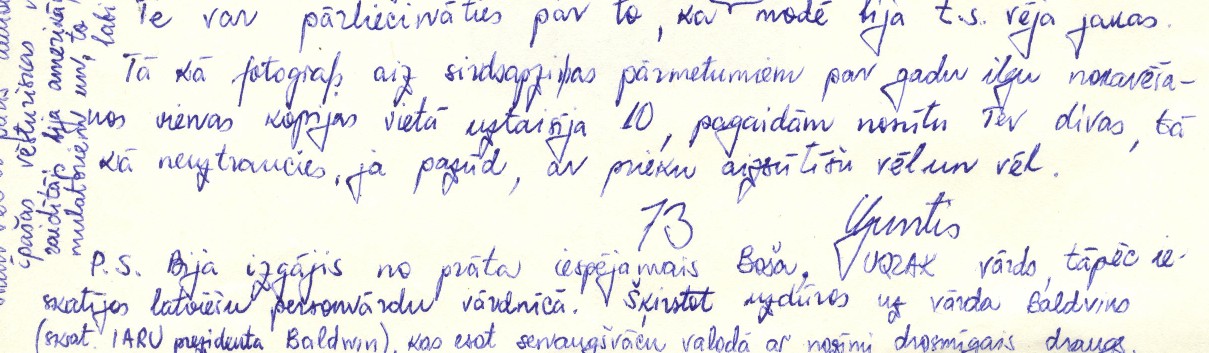 Te var pārliecināties par to, ka modē bija t.s. vēja jakas.
Tā kā fotografs aiz sirdsapziņas pārmetumiem par gadu ilgu nokavēša-
nos vienas kopijas vietā uztaisīja 10, pagaidām nosūtu Tev divas, tā
kā neuztraucies, ja pazūd, ar prieku aizsūtīšu vēl un vēl.
73 Guntis
P.S. Bija izgājis no prāta iespējamais Boša, UQ2AK vārds, tāpēc ie-
skatījos latviešu personvārdu vārdnīcā. Šķirstot uzdūros uz vārda Baldvins
(skat. IARU prezidenta Baldwin), kas esot senaugšvācu valodā ar nozīmi drosmīgais draugs.
pašas vēsturiskas
raidītājs bija
mulatoriem un, to